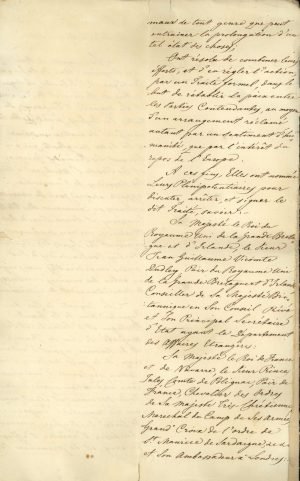 maux de tout genre que peut
entrainer la prolongation d'un
tel état des choses,
Ont résolu de combiner leurs
efforts, et d'en régler l'action,
par un Traité formel, dans le
but de rétablir la paix entre
les Parties Contendantes, au moyen
d'un arrangement réclamé
autant par un sentiment d'hu-
manité, que par l'intérêt du
repos de l'Europe.
A ces fins, Elles ont nommé
Leurs Plénipotentiaires, pour
discuter, arrêter, et signer le
dit Traité, savoir:
Sa Majesté le Roi du
Royaume Uni de la Grande Bretag-
ne et d'Irlande, le Sieur
Jean Guillaume Vicomte
Dudley, Pair du Royaume Uni
de la Grande Bretagne et d'Irlande,
Conseiller de Sa Majesté Bri-
tannique en Son Conseil Privé
et Son Principal Secrétaire
d'Etat ayant le Département
des Affaires Etrangères.
Sa Majesté le Roi de France
et de Navarre, le Sieur Prince
Jules Comte de Polignac, Pair de
France, Chevalier des Ordres
de Sa Majesté Très Chrétienne,
Maréchal de Camp de Ses Armées,
Grand Croix de l'ordre de
St. Maurice de Sardaigne,
et Son Ambassadeur à Londres.